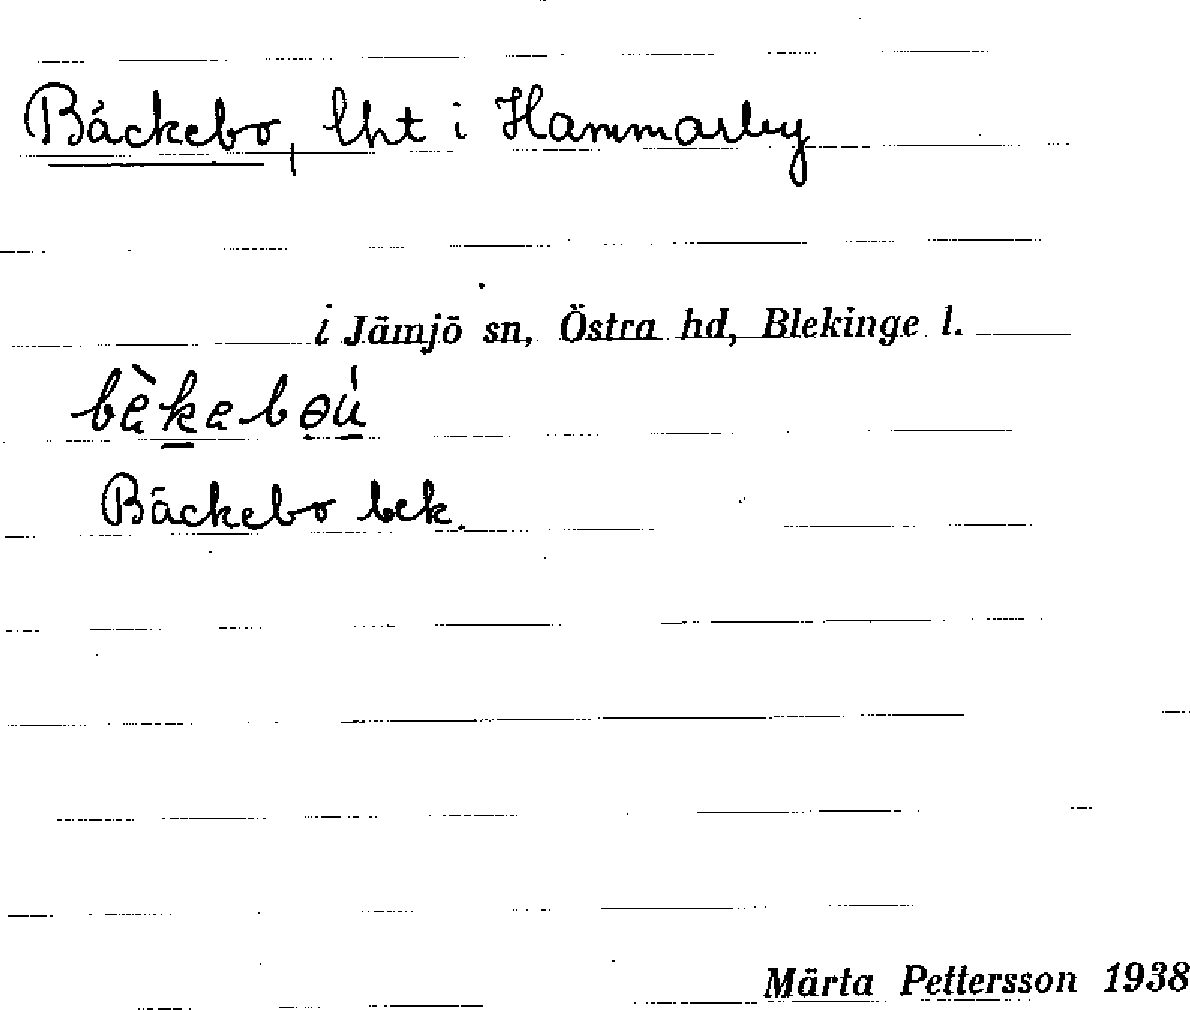 Bäckebo, lht i Hammarby
i Jämjö sn, Östra hd, Blekinge l.
Bäckebo bek.
Märta Pettersson 1938